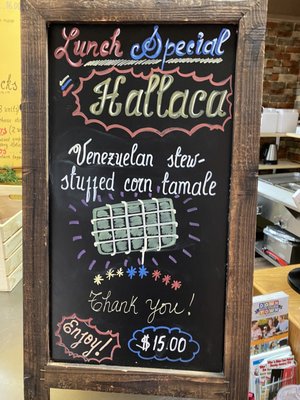 Lunch Special
Hallaca
Venezuelan stew-
stuffed corn tamale
Thank you!
Enjoy!
$15.00